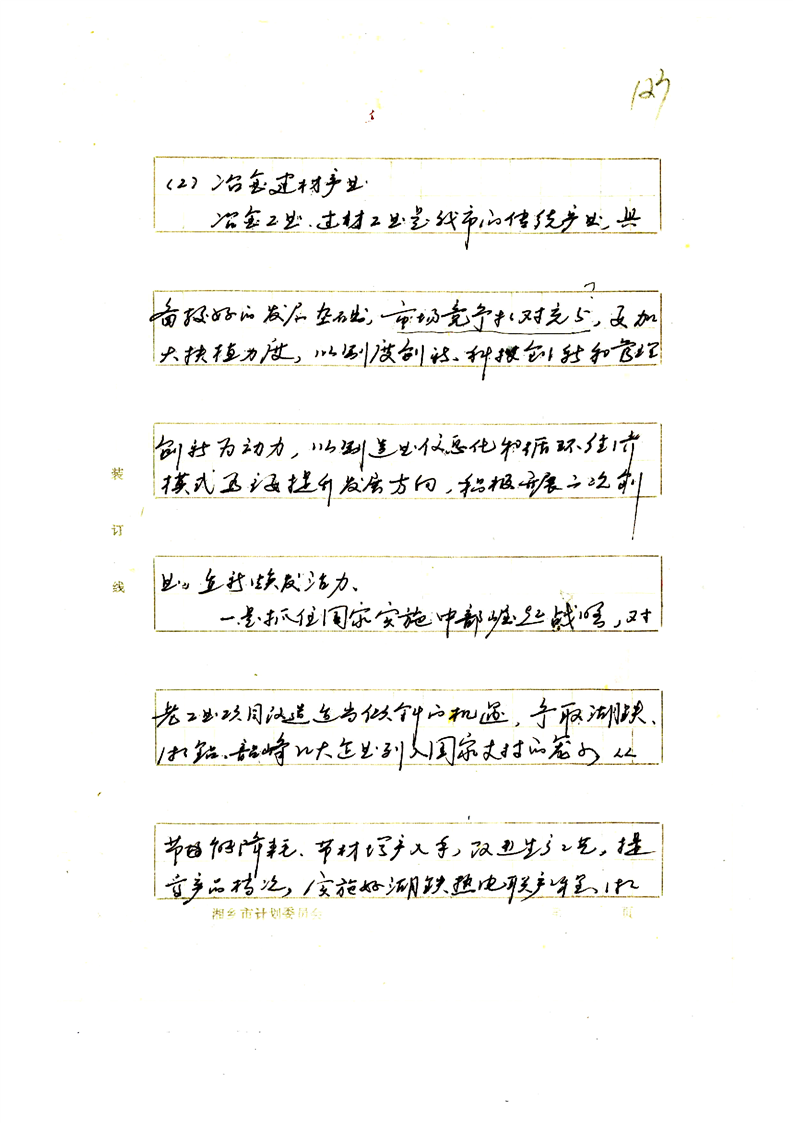 123
(2) 冶金建材产业
冶金工业、建材工业是我市的传统产业，具
备较好的发展基础，市场竞争相对充分，要加
大扶植力度，以制度创新、科技创新和管理
创新为动力，以制造业信息化和循环经济
模式为主要提升发展方向，积极开展二次创
业。重新焕发活力、
一是抓住国家实施中部崛起战略，对
老工业项目改造适当倾斜的机遇，争取湖铁、
湘铝、韶峰几大企业列入国家支持的笼子 从
节能降耗、节材增产入手，改进生产工艺，提
高产品档次，实施好湖铁热电联产项目、湘
装
订
线
湘乡市计划委员会
页